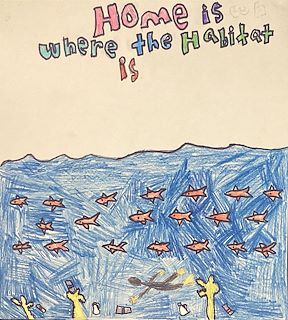 Home is
where the Habitat
is